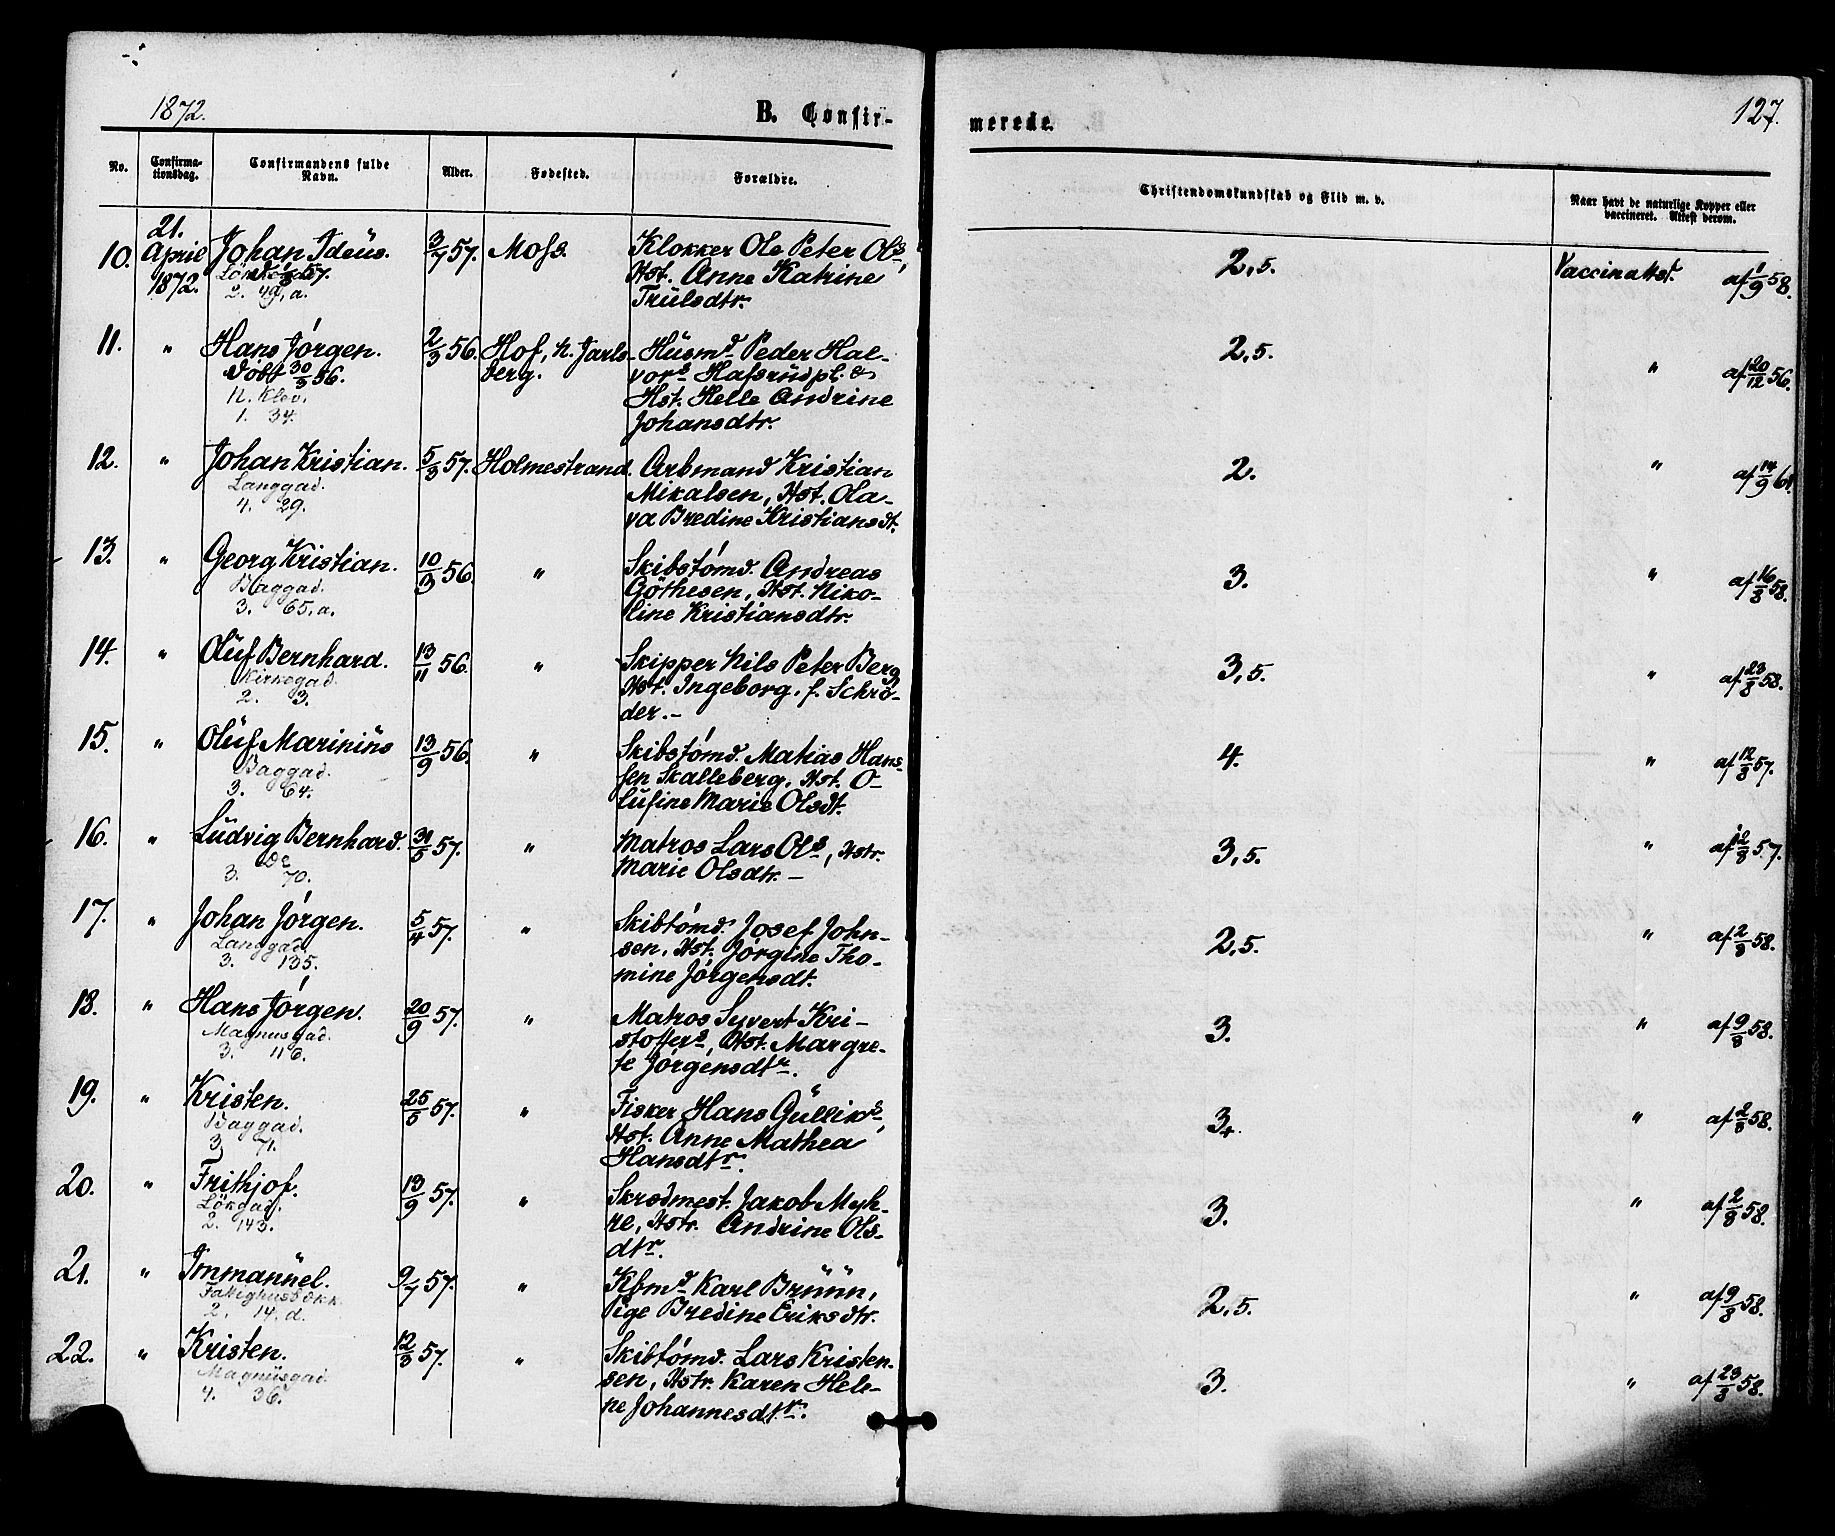 1872.
B. Confir-
merede.
127.
No.
Confirma-
tionsdag.
Confirmandens fulde
Navn.
Alder.
Fødested.
Forældre.
Christendomskundskab og Flid m. v.
Naar havt de naturlige Kopper eller
vaccineret. Attest derom.
10.
21.
April
1872.
Johan Idéus.
2. 49, a.
3/7 57.
Moss.
Klokker Ole Peter Ols,
Hst. Anne Katrine
Trulsdtr.
2,5.
Vaccinattst. af 1/9 58.
11. " Hans Jörgen.
Döbt 30/3 56.
N. Klev.
1. 34.
2/3 56.
Hof, N. Jarls-
berg.
Husmd Peder Hal-
vors Hafsrudpl. &
Hst. Helle Andrine
Johansdtr.
2,5.
" af 20/12 56.
12. " Johan Kristian.
Langgad.
4. 29.
5/3 57.
Holmestrand.
Arbmand Kristian
Mikalsen, Hst. Ola-
va Bredine Kristiansdt.
2.
" af 14/9 61.
13. " Georg Kristian.
Baggad.
3. 65, a.
10/13 56.
"
Skibstömd. Andreas
Göthesen, Hst. Niko-
line Kristiansdtr.
3.
" af 16/8 58.
14. " Oluf Bernhard.
Kirkegad.
2. 3.
13/11 56.
"
Skipper Nils Peter Berg,
Hst. Ingeborg, f. Schrö-
der.-
3,5.
" af 23/8 58.
15. " Oluf Marinius
Baggad.
3. 64.
13/9 56.
"
Skibstömd. Matias Hans-
sen Skalleberg, Hst. O-
lufine Marie Olsdt.
4.
" af 12/8 57.
16. " Ludvig Bernhard.
Do
3. 70.
31/5 57.
"
Matros Lars Ols, Hstr.
Marie Olsdtr. -
3,5.
" af 12/8 57.
17. " Johan Jörgen.
Langgad.
3. 135.
5/4 57.
"
Skibtömd. Josef John-
sen, Hst. Jörgine Tho-
mine Jörgensdt.
2,5.
" af 2/8 58.
18. " Hans Jörgen.
Magnusgad.
3. 116.
20/9 57.
"
Matros Syvert Kri-
stoffers, Hst. Margre-
te Jörgensdtr.
3.
" af 9/8 58.
19. " Kristen.
Baggad.
3. 71.
25/5 57.
"
Fisker Hans Gulliks,
Hst. Anne Mathea
Hansdtr.
3+.
" af 2/8 58.
20. " Frithjof.
Lökgad.
2. 143.
13/9 57.
"
Skrædmest. Jakob Myh-
re, Hstr. Andrine Ols-
dtr.
3.
" af 2/8 58.
21. " Immanuel.
Fattighusbækk.
2. 14, d.
9/7 57.
"
Kbmd Karl Bruun,
Pige Bredine Eriksdtr.
2,5.
" af 9/8 58.
22. " Kristen.
Magnusgad.
4. 36.
12/3 57.
"
Skibtömd. Lars Kristen-
sen, Hstr. Karen Hele-
ne Johannesdtr.
3.
" af 23/8 58.